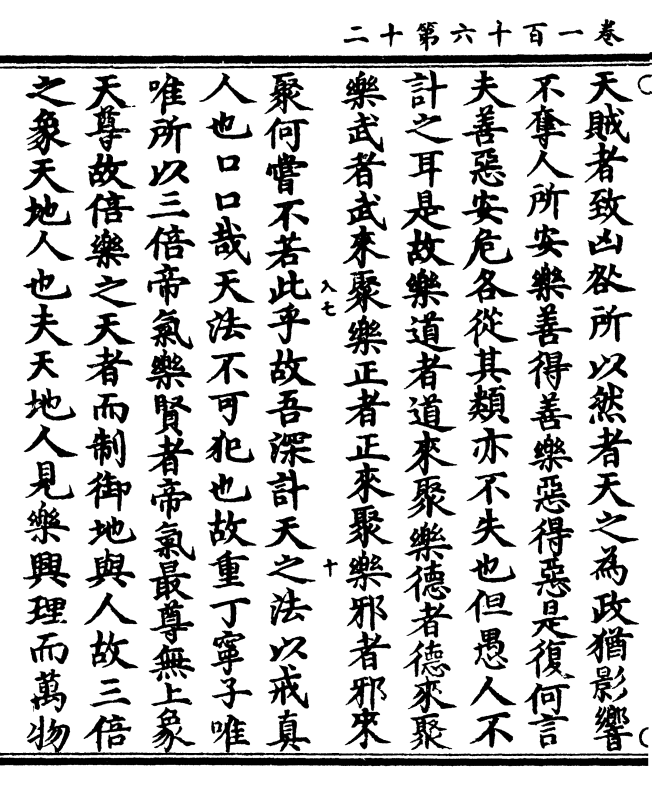 卷一百十六第十二
天賊者致凶咎所以然者天之為政猶影響
不奪人所安樂善得善樂惡得惡是復何言
夫善惡安危各從其類亦不失也但愚人不
計之耳是故樂道者道來聚樂德者德來聚
樂武者武來聚樂正者正來聚樂邪者邪來
入七
十
聚何嘗不若此乎故吾深計天之法以戒真
人也口口哉天法不可犯也故重丁寧子唯
唯所以三倍帝氣樂賢者帝氣最尊無上象
天尊故倍樂之天者而制御地與人故三倍
之象天地人也夫天地人見樂興理而萬物